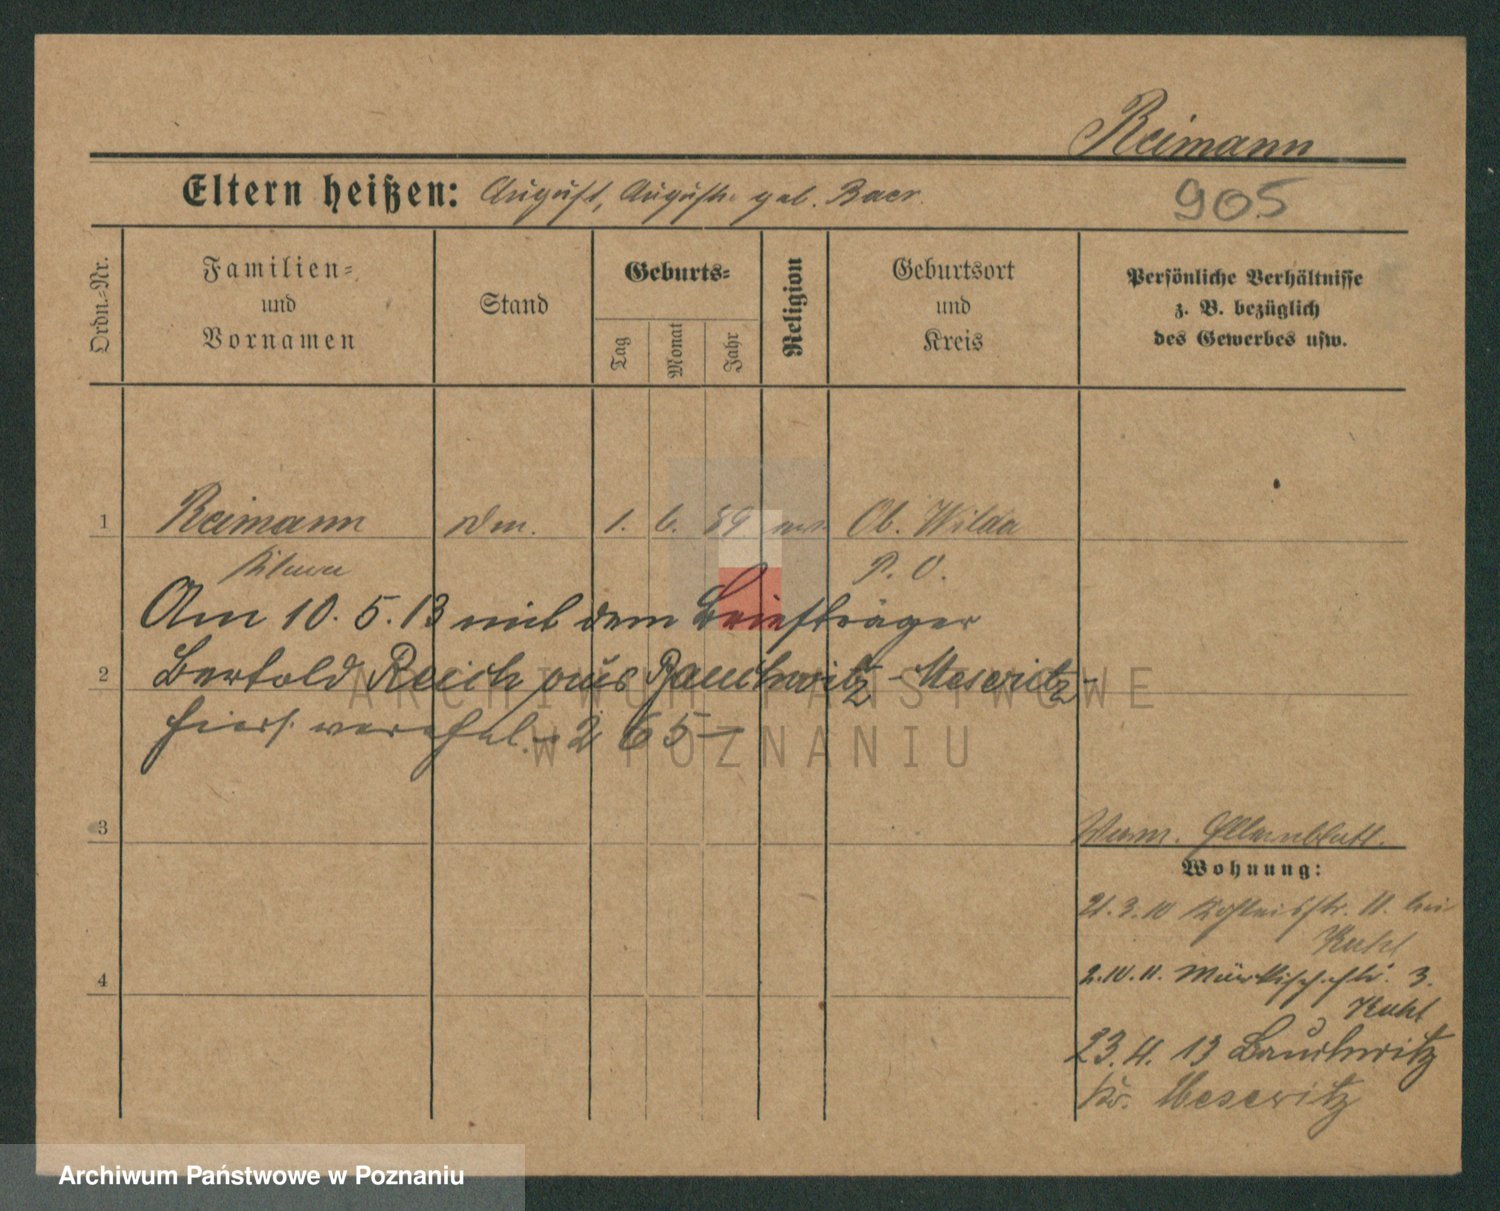 Reimann
Eltern heißen: August, Auguste geb. Baer.
905
Ordn.=Nr.
Familien= und Vornamen
Stand
Geburts=
Tag
Monat
Jahr
Religion
Geburtsort und Kreis
Persönliche Verhältnisse
z. B. bezüglich
des Gewerbes usw.
1 Reimann 1. 6. 89 Ob. Wilda
P. O.
Am 10. 5. 13 mit dem Briefträger
2 Bertold Reich aus Bauchwitz - Meseritz -
hiers. verehel. - 265 -
3
Wohnung:
21. 3. 10 11. bei
Kuhl
2. 10. 11. Märkischestr. 3.
Kuhl
4
23. 4. 13 Bauchwitz
Kr. Meseritz
ARCHIWUM PAŃSTWOWE
W POZNANIU
Archiwum Państwowe w Poznaniu